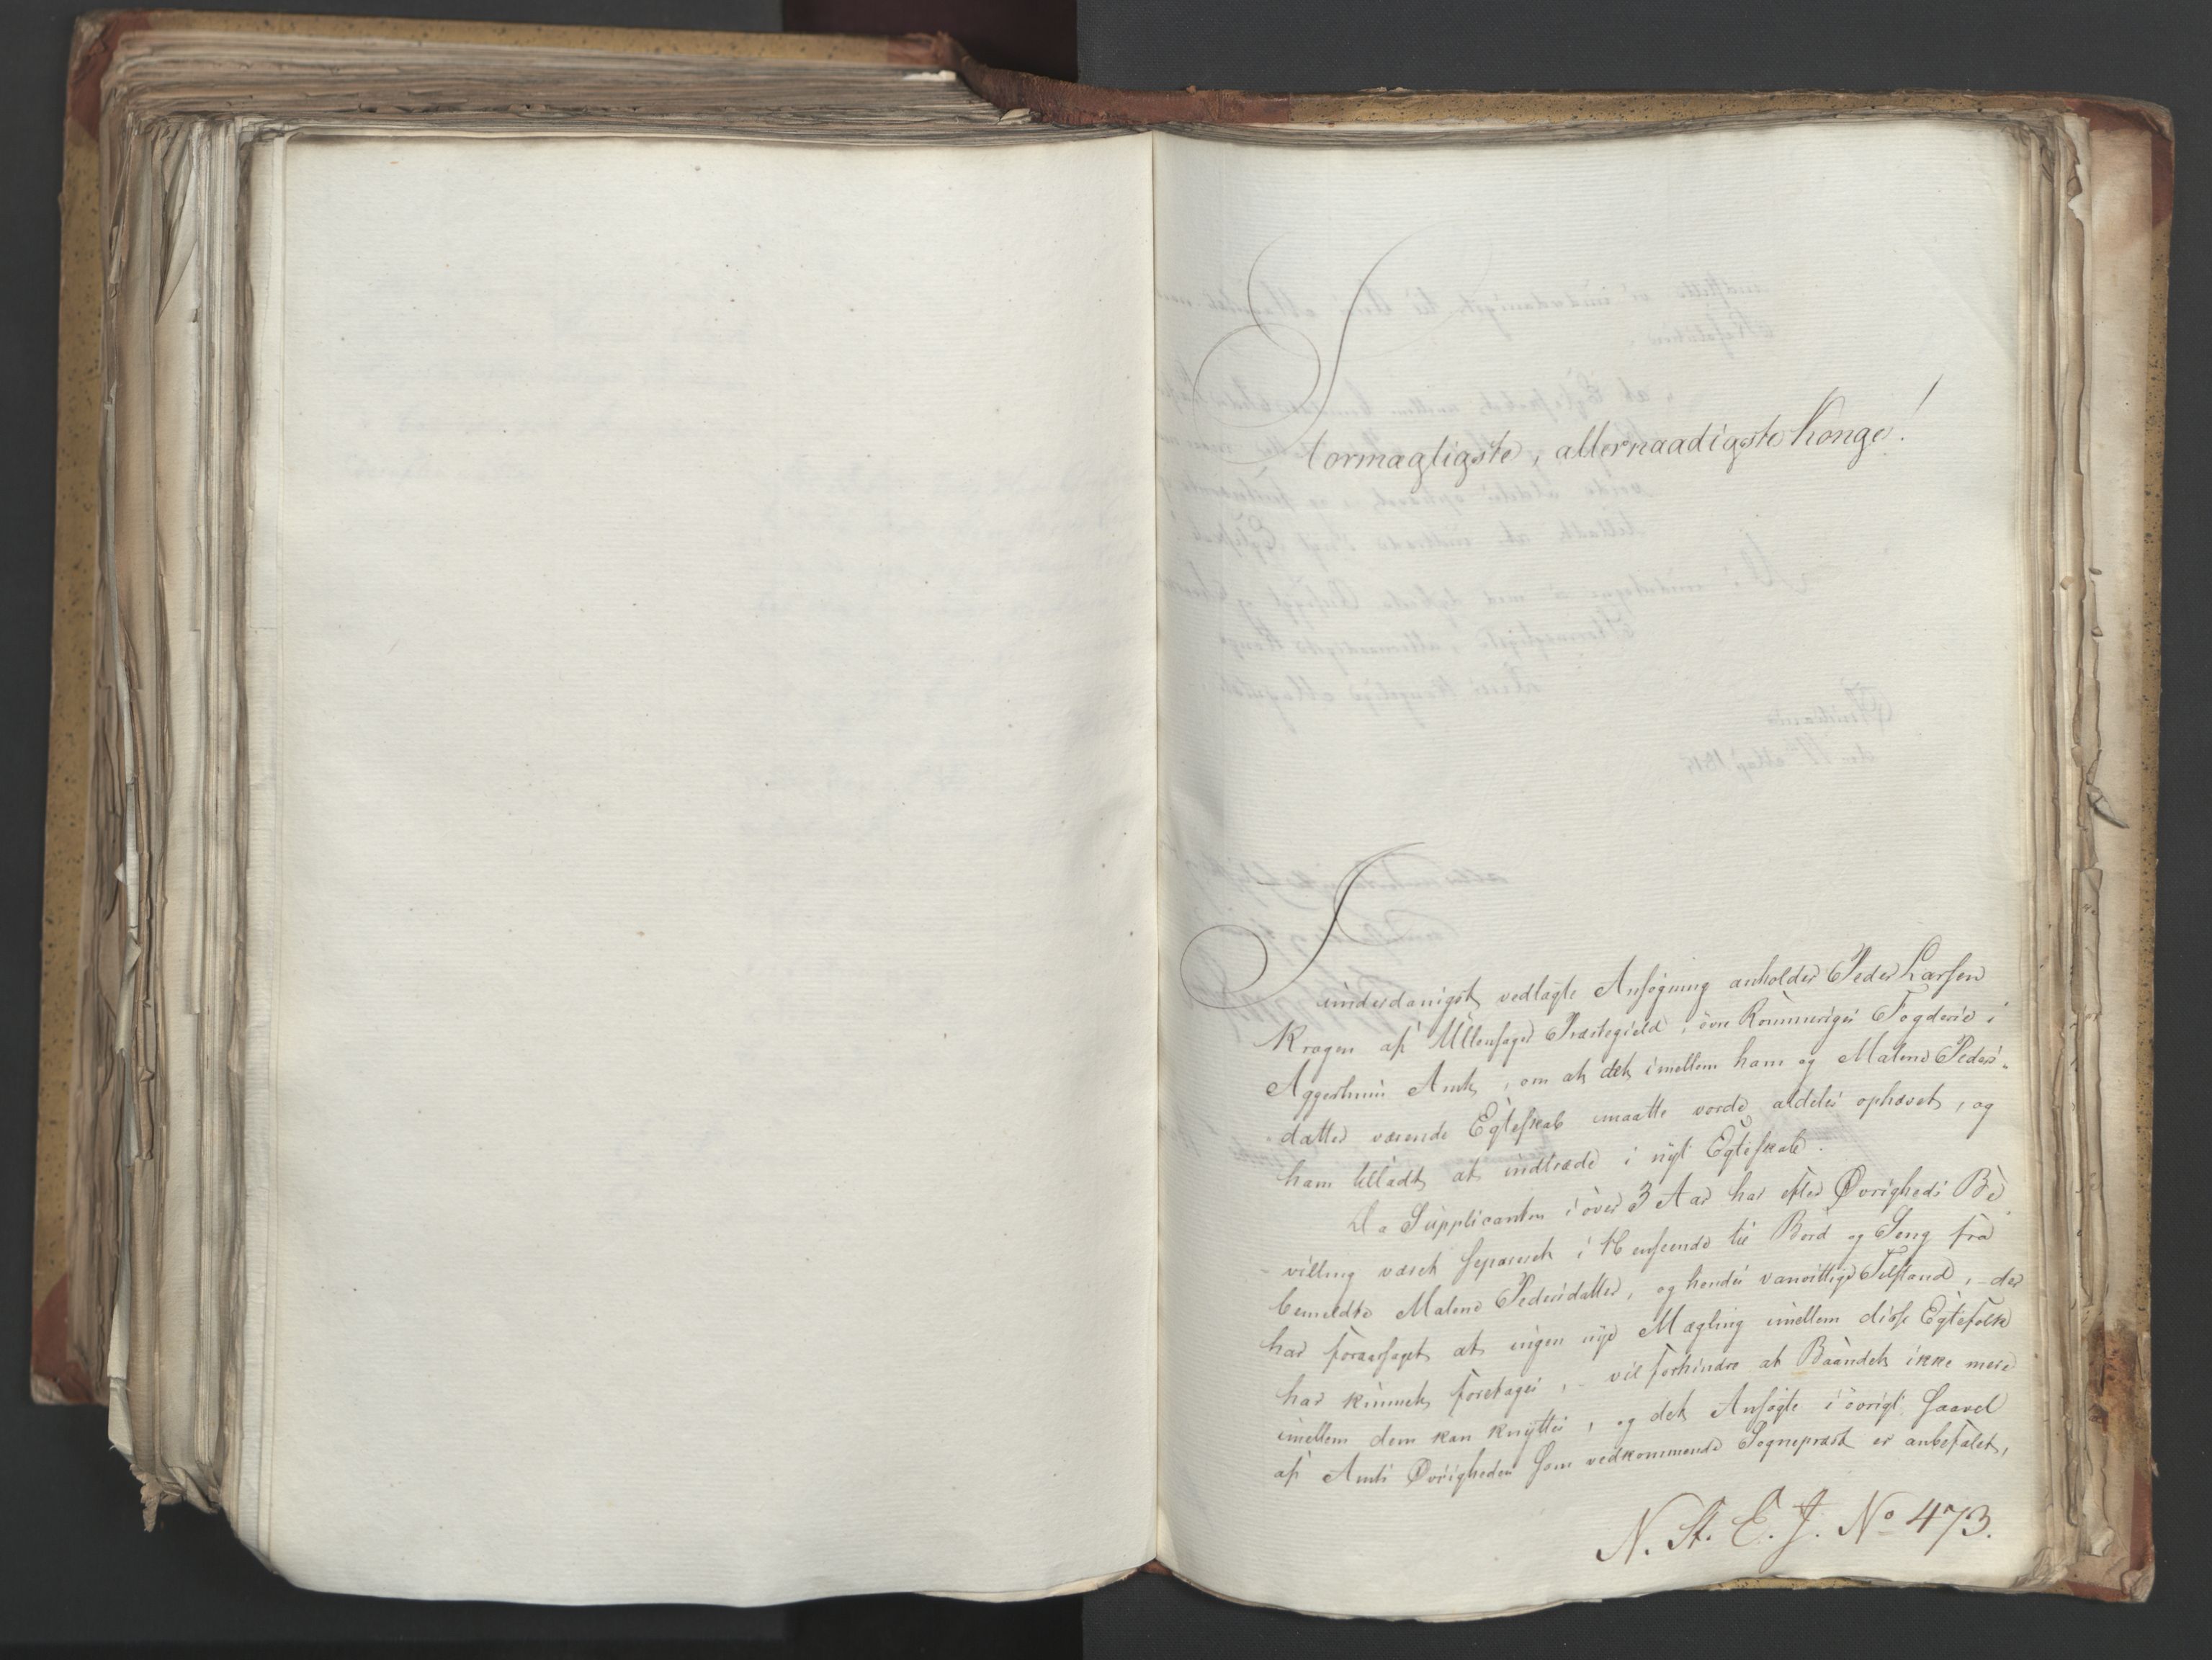 Stormægtigste, allernaadigste Konge!
I underdanigst vedlagte Ansøgning anholder Peder Larsen
Kragen af Ullensager Præstegield i övre Rommeriges Fogderie i
Aggershuus Amt, om at det imellem ham og Malene Peders-
datter værende Egteskab maatte vorde aldeles ophævet, og
ham tilladt at indtræde i nyt Egteskab.
Da Supplicanten i över 3 Aar har efter Øvrigheds Be-
-villing været separeret i Henseende til Bord og Seng fra
bemeldte Malene Pedersdatter, og hendes vanvittige Tilstand, - der
har foraarsaget at ingen nye Mægling imellem disse Egtefolk
har kunnet foretages, - vil forhindre at Baandet ikke mere
imellem dem kan knyttes, og det Ansøgte i övrigt saavel
af Amts Øvrigheden som vedkommende Sognepræst er anbefalet,
N. St. E. J. No 473.